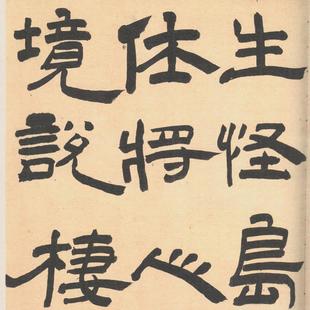 生怪島
休將心
境說棲